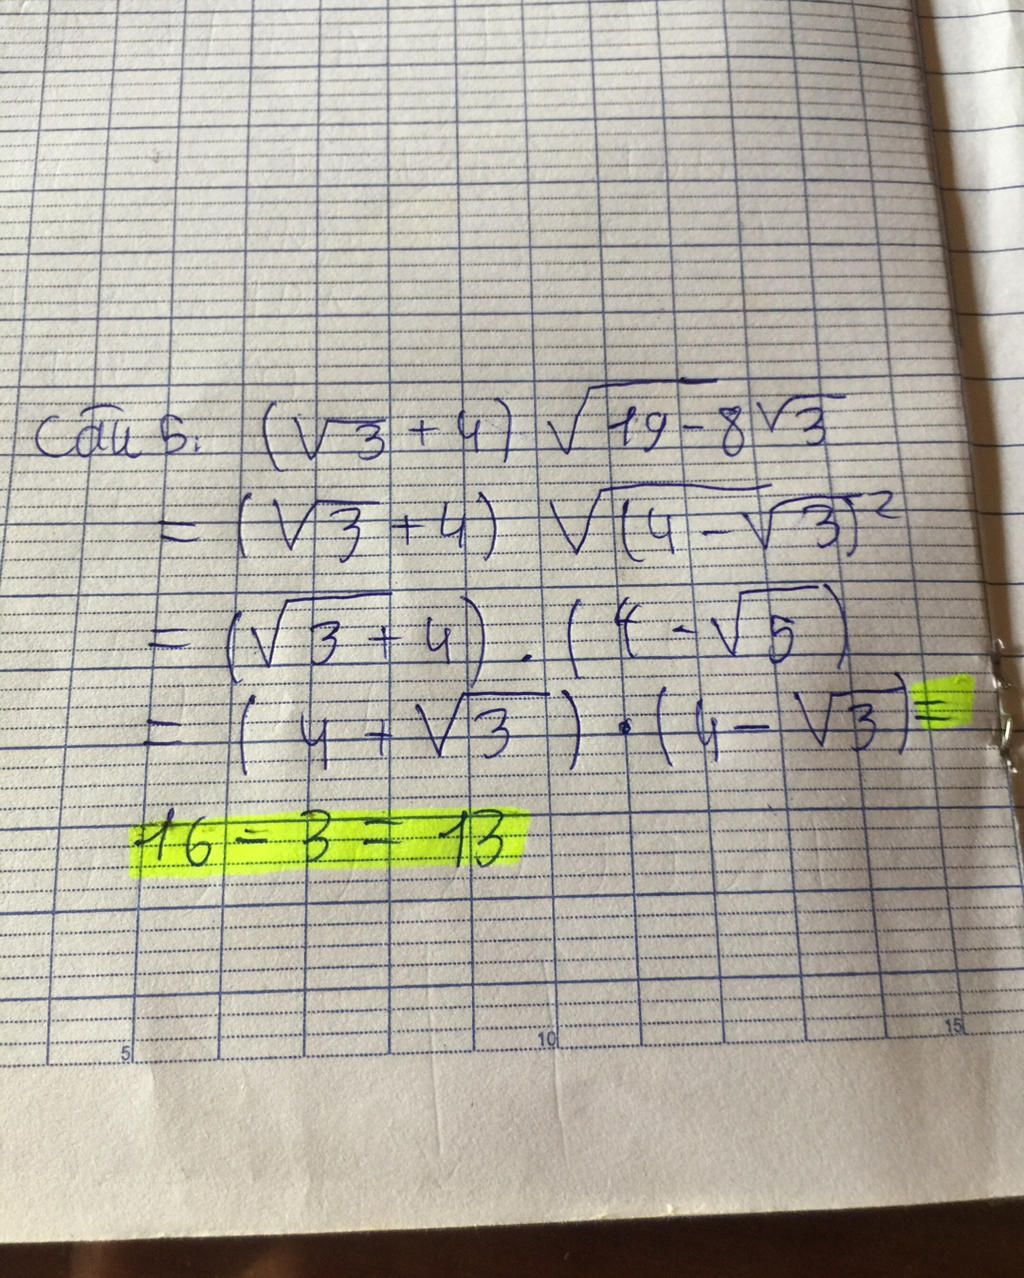 Câu 5. (√3 + 4) √(19 - 8√3)
= (√3 + 4) √((4 - √3)²)
= (√3 + 4) . (4 - √5)
= (4 + √3) . (4 - √3) =
16 - 3 = 13
5 10 15